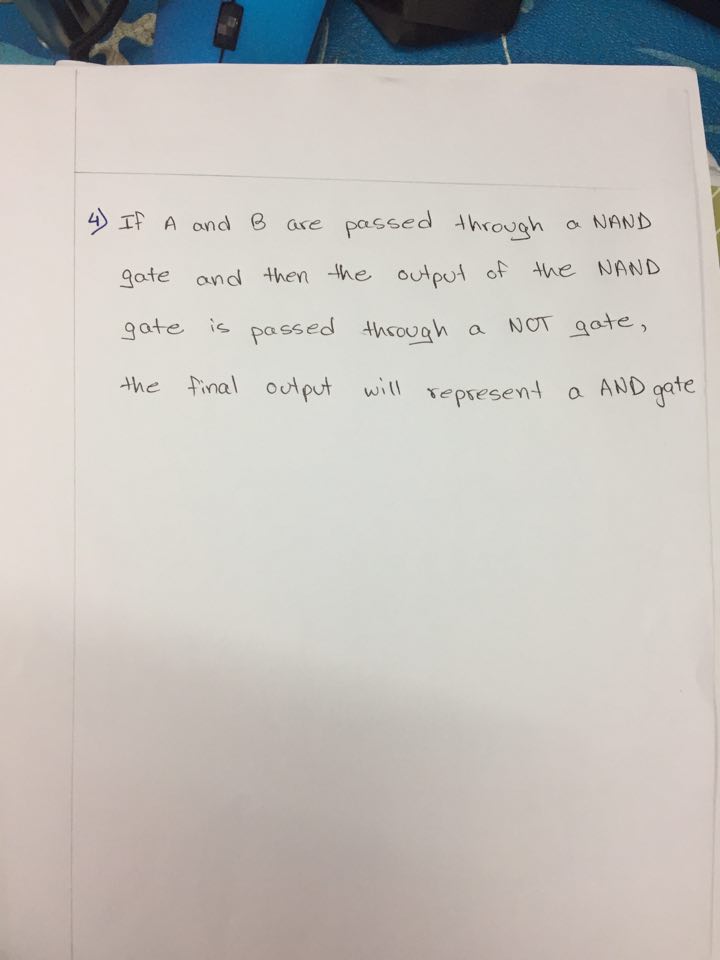 4) If A and B are passed through a NAND
gate and then the output of the NAND
gate is passed through a NOT gate,
the final output will represent a AND gate